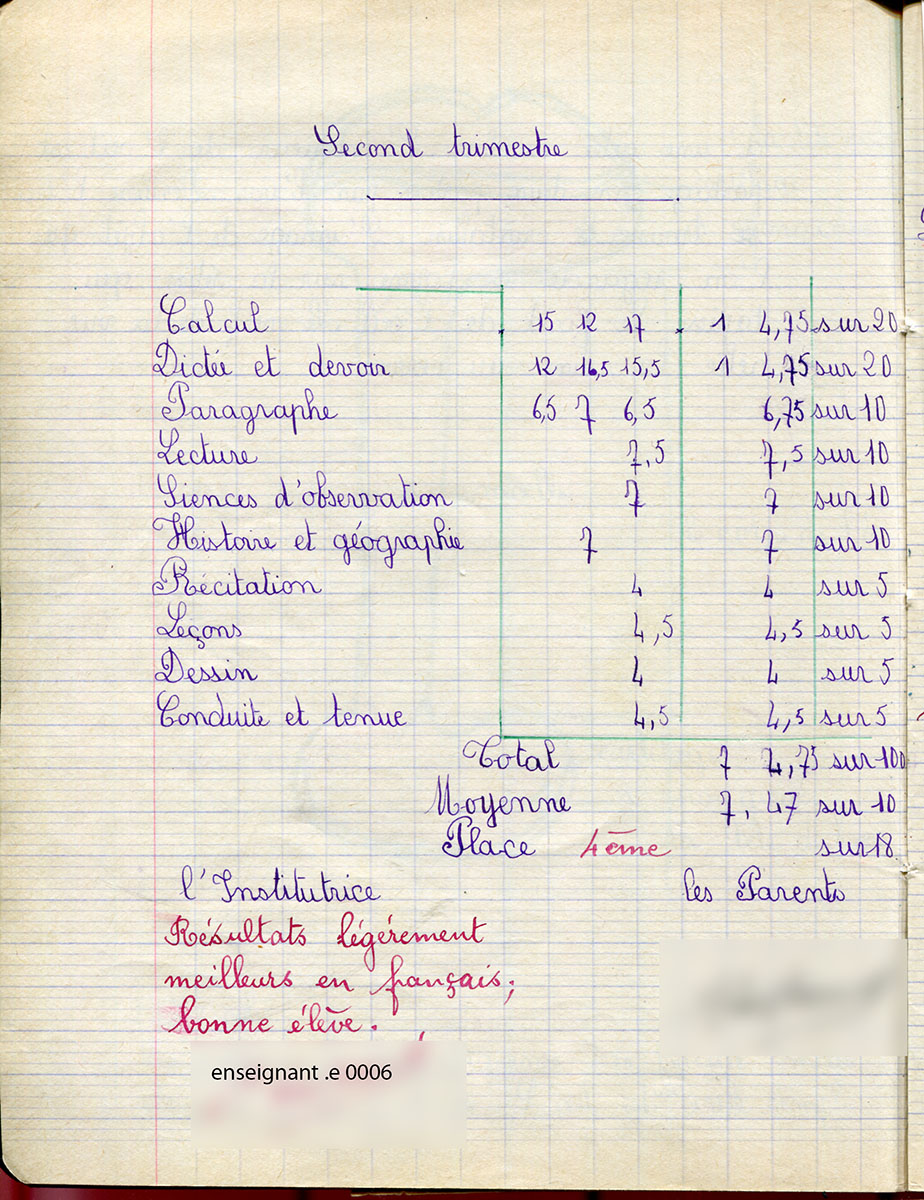 Second trimestre
Calcul 15 12 17 1 4,75 sur 20
Dictée et devoir 12 16,5 15,5 1 4,75 sur 20
Paragraphe 6,5 7 6,5 6,75 sur 10
Lecture 7,5 7,5 sur 10
Siences d'observation 7 7 sur 10
Histoire et géographie 7 7 sur 10
Récitation 4 4 sur 5
Leçons 4,5 4,5 sur 5
Dessin 4 4 sur 5
Conduite et tenue 4,5 4,5 sur 5
Total 7 4,75 sur 100
Moyenne 7,47 sur 10
Place 4ème sur 18
l'Institutrice les Parents
Résultats légérement
meilleurs en français;
bonne élève.
enseignant .e 0006